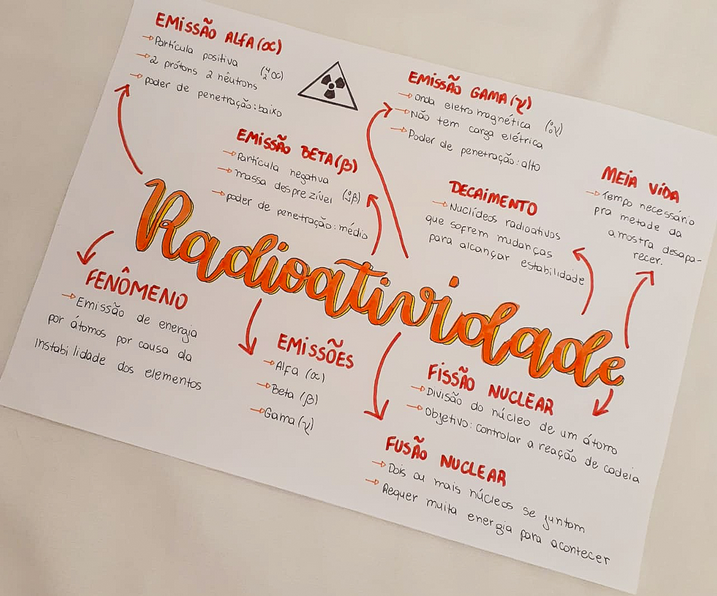 EMISSÃO ALFA (α)
→ Partícula positiva (⁴₂α)
→ 2 prótons 2 nêutrons
→ poder de penetração: baixo
EMISSÃO BETA (β)
→ Partícula negativa
→ massa desprezível (⁰₋₁β)
→ poder de penetração: médio
EMISSÃO GAMA (γ)
→ onda eletromagnética (⁰₀γ)
→ Não tem carga elétrica
→ Poder de penetração: alto
DECAIMENTO
→ Nuclídeos radioativos
que sofrem mudanças
para alcançar estabilidade
MEIA VIDA
→ Tempo necessário
pra metade da
amostra desapa-
recer.
Radioatividade
FENÔMENO
→ Emissão de energia
por átomos por causa da
instabilidade dos elementos
EMISSÕES
→ Alfa (α)
→ Beta (β)
→ Gama (γ)
FISSÃO NUCLEAR
→ Divisão do núcleo de um átomo
→ Objetivo: controlar a reação de cadeia
FUSÃO NUCLEAR
→ Dois ou mais núcleos se juntam
→ Requer muita energia para acontecer